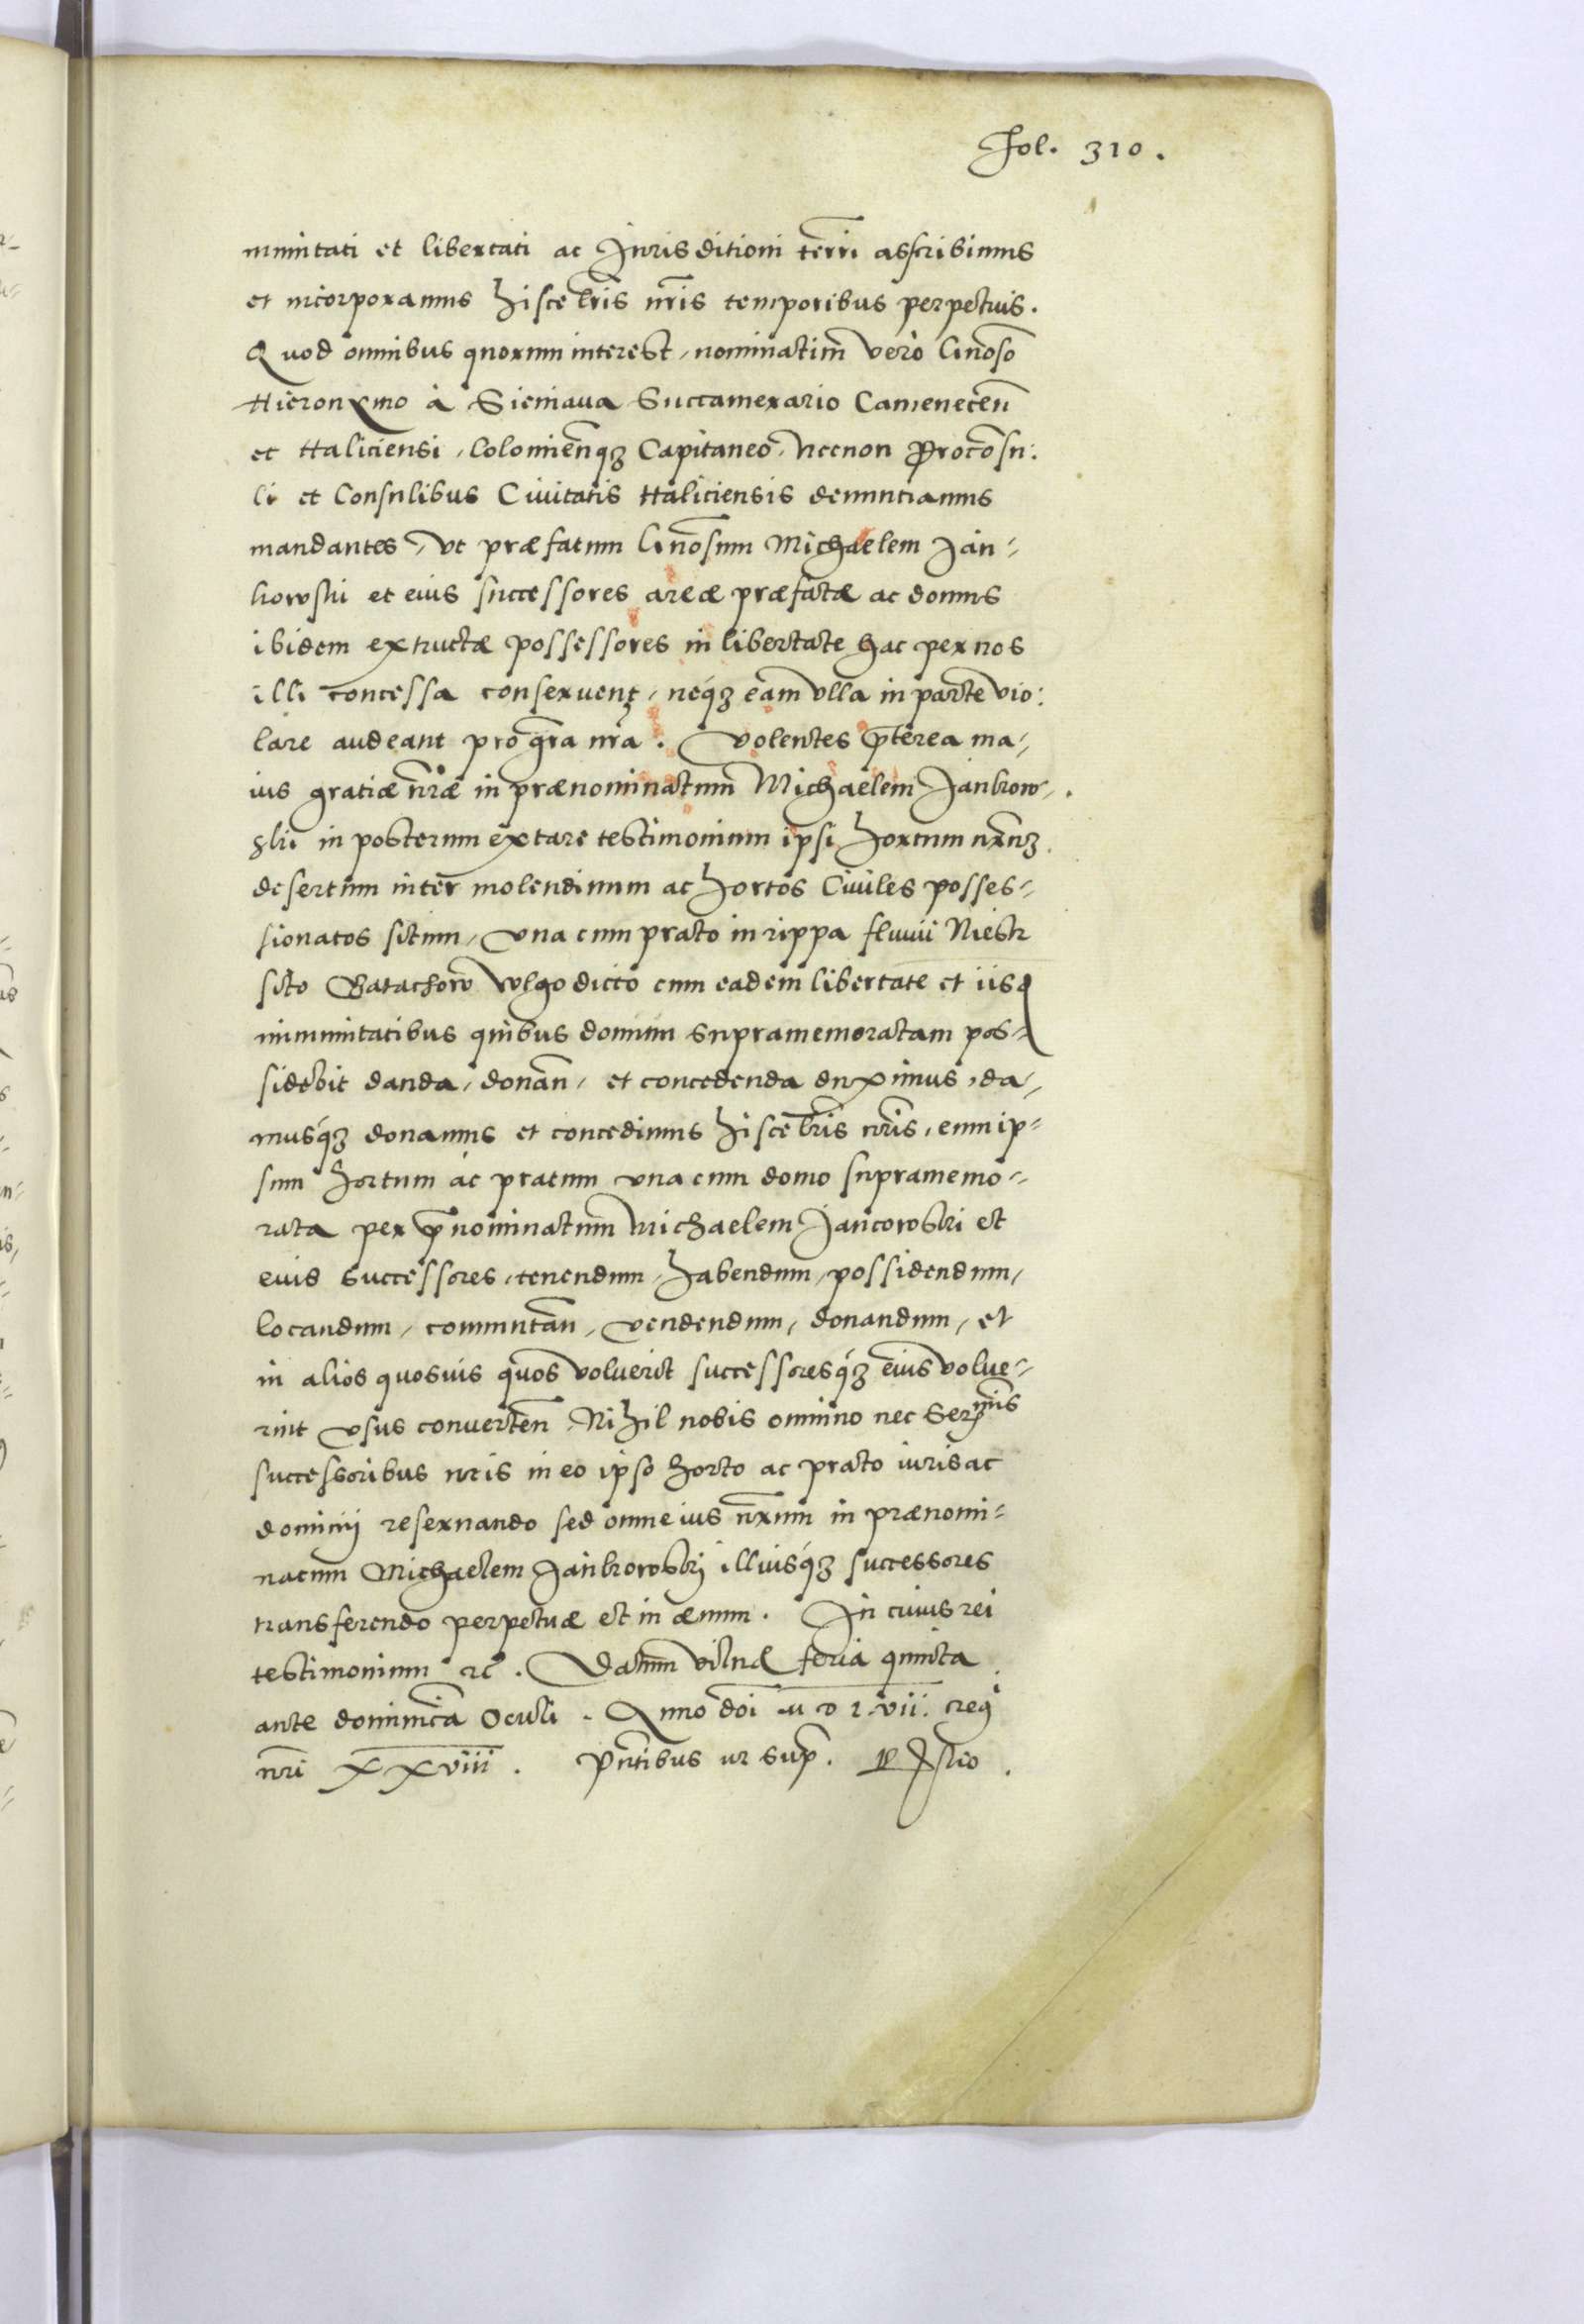 Fol. 310.
munitati et libertati ac Jurisditioni terrri asscribimus
et incorporamus hisce lris nris temporibus perpetuis.
Quod omnibus quorum interest, nominatim vero Gnoso
Hieronymo à Sieniava Succamerario Camenecen
et Haliciensi, Colomienq₃ Capitaneo, necnon Proconsu:
li et Consulibus Civitatis Haliciensis denunciamus
mandantes, vt præfatum Gnosum Michaelem Jan=
kowski et eius successores areæ præfatæ ac domus
ibidem extructæ possessores in libertate hac per nos
illi concessa conservent, neq₃ eam vlla in parte vio:
lare audeant pro gra nra. Volentes pterea ma=
ius gratiæ nræ in prænominatum Michaelem Jankow=
ski in posterum extare testimonium ipsi hortum nrum
desertum inter molendinum ac hortos Civiles posses=
sionatos situm, vna cum prato in rippa fluvii Niestr
sito Batachow vulgo dicto cum eadem libertate et iisd
immunitatibus quibus domum supramemoratam pos=
sidebit danda, donan, et concedenda duximus, da=
musq₃ donamus et concedimus hisce lris nris, eum ip=
sum hortum ac pratum vna cum domo supramemo=
rata per pnominatum Michaelem Jancowski et
eius successores, tenendum, habendum, possidendum,
locandum, commutan, vendendum, donandum, et
in alios quosuis quos voluerit successoresq₃ eius volue=
rint vsus converten. Nihil nobis omnino nec Sermis
successoribus nris in eo ipso horto ac prato iuris ac
dominij reservando sed omne ius nrum in prænomi=
natum Michaelem Jankowskj illiusq₃ successores
transferendo perpetuæ et in ævum. In cuius rei
testimonium rc. Datum vilnæ feria quinta
ante dominica Oculi. Anno doi M D L vii. regj
nri xxviii. Pntibus ut sup.